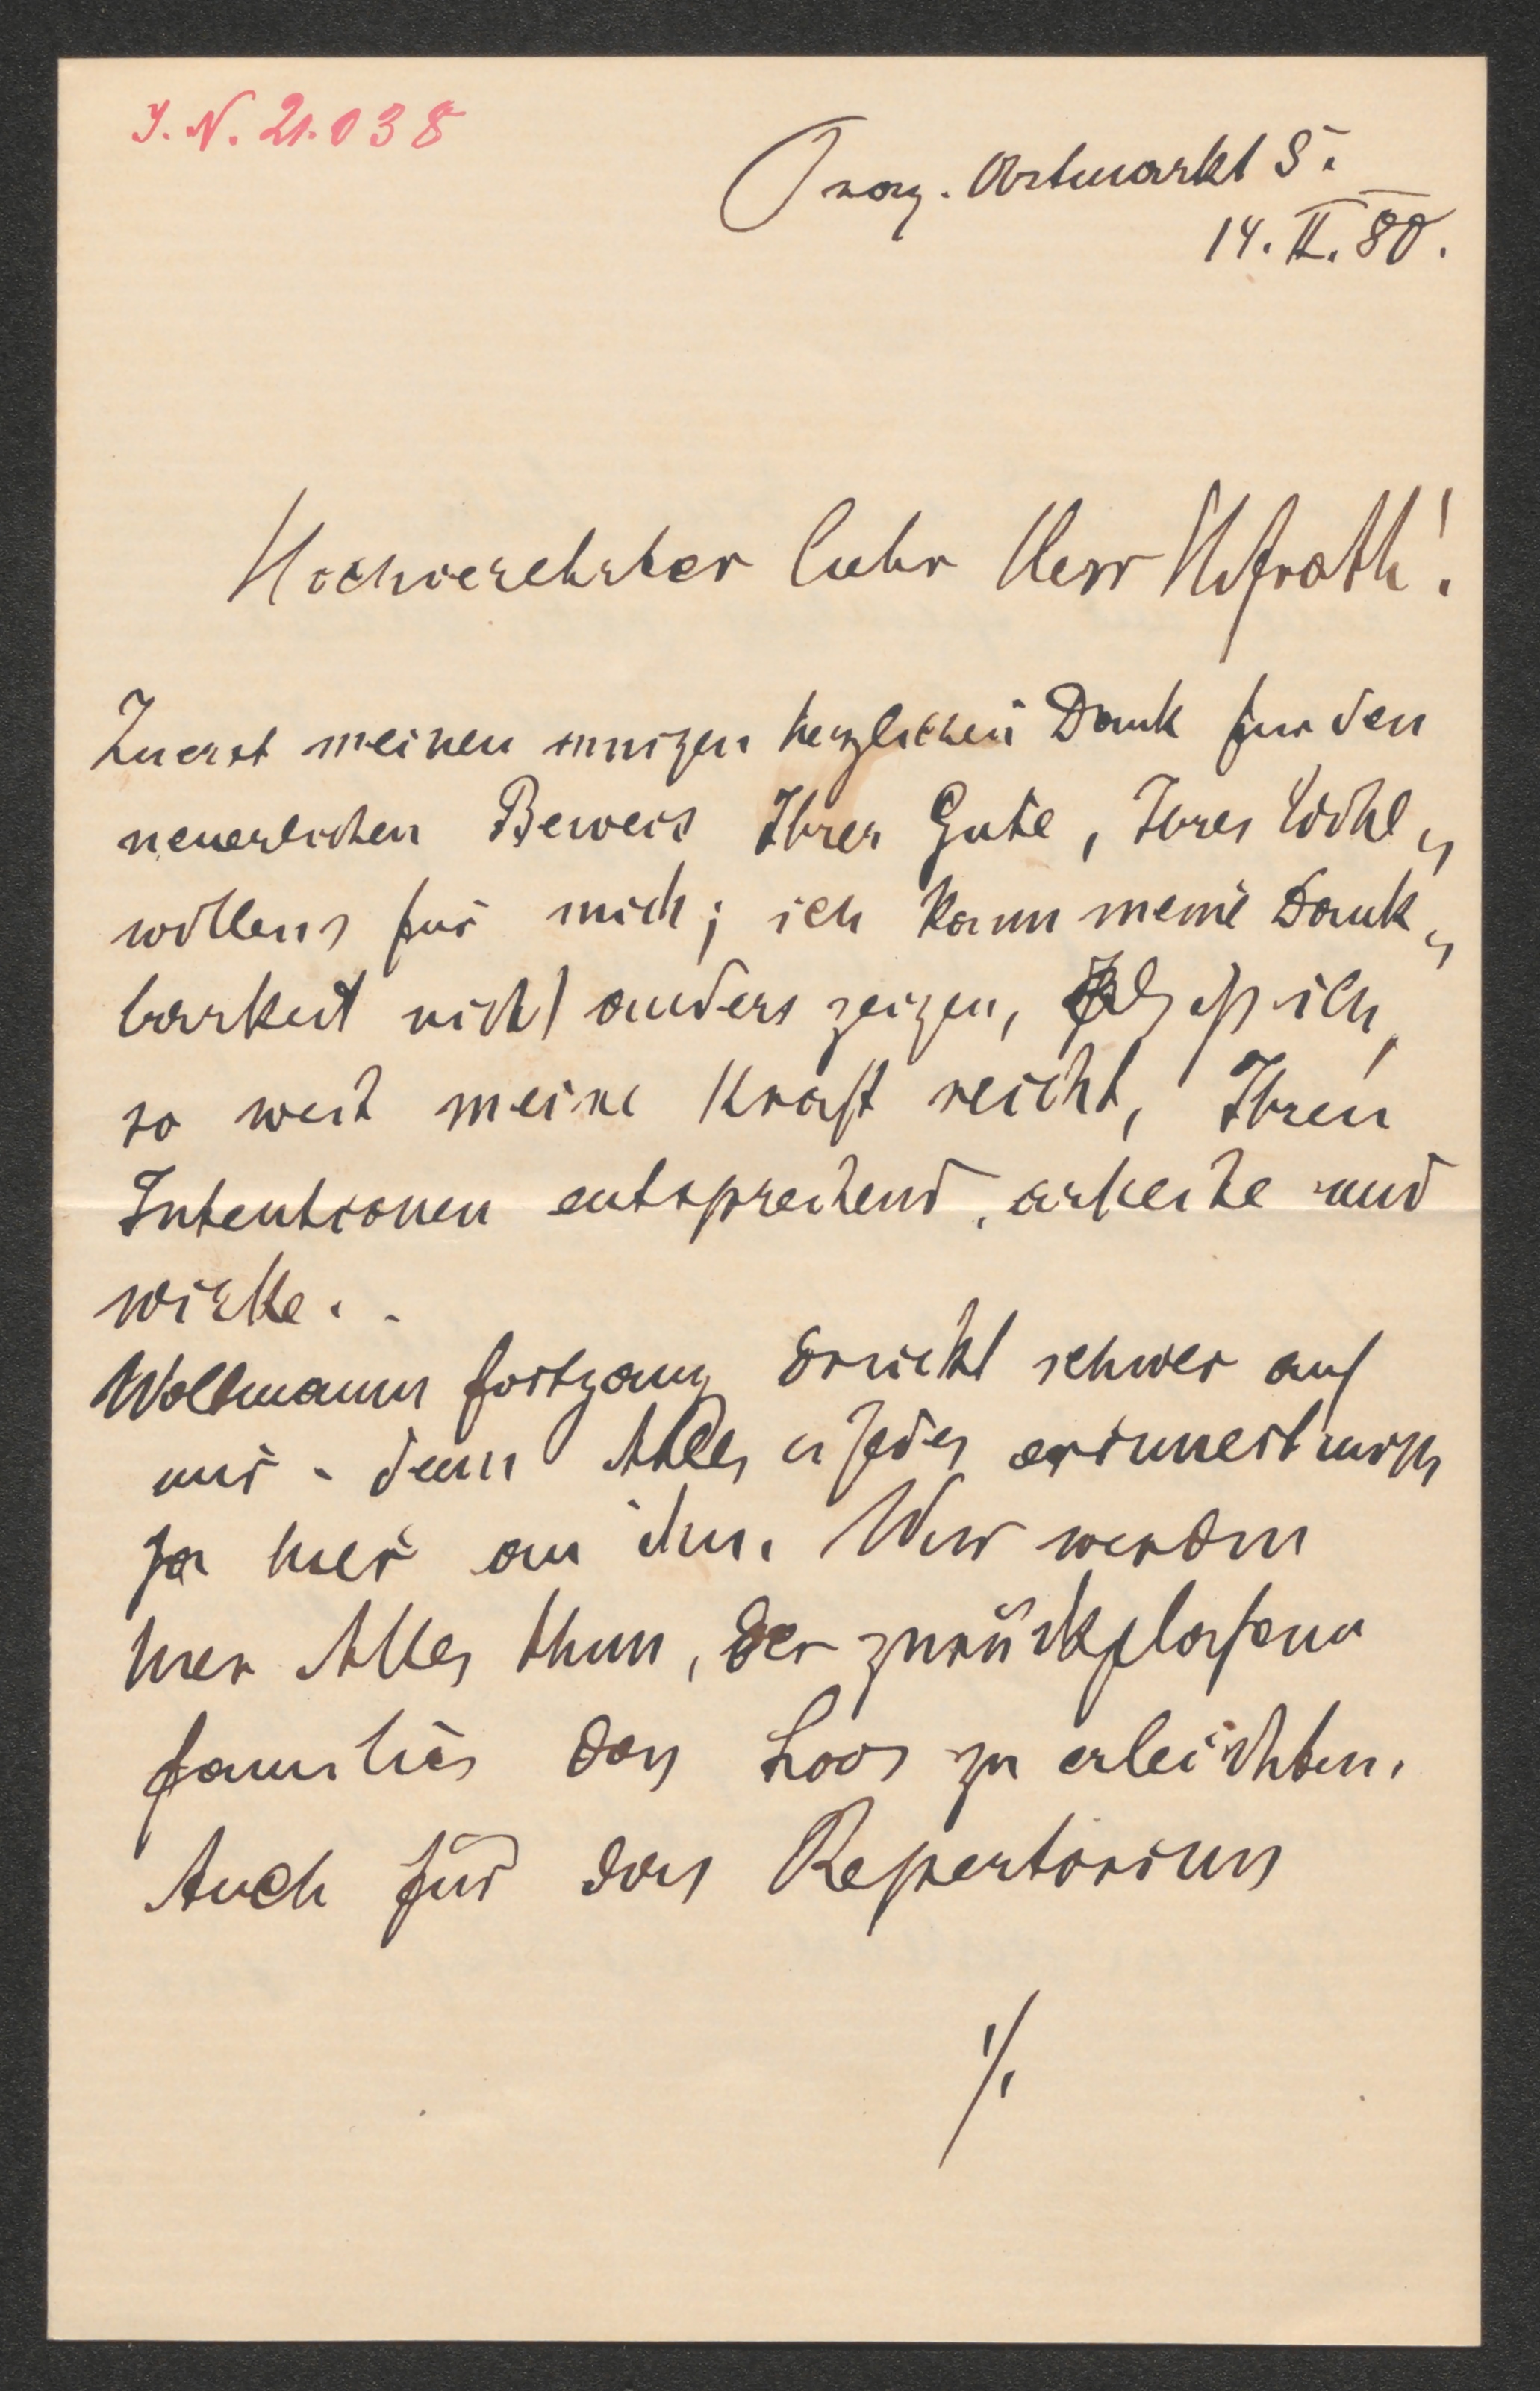 I. N. 21.038
Prag. Obstmarkt 5.
14. II. 80.
Hochverehrter lieber Herr Hofrath!
Zuerst meinen innigen herzlichen Dank für den
neuerlichen Beweis Ihrer Güte, Ihres Wohl„
wollens für mich; ich kann meine Dank„
barkeit nicht anders zeigen, als daß ich,
so weit meine Kraft reicht, Ihren
Intentionen entsprechend, arbeite und
wirke.
Woltmanns Fortgang drückt schwer auf
mir - denn Alles u Jedes erinnert mich
ja hier an ihn. Wir werden
hier Alles thun, der zurückgelaßenen
Familie das Loos zu erleichtern.
Auch für das Repertorium
./.